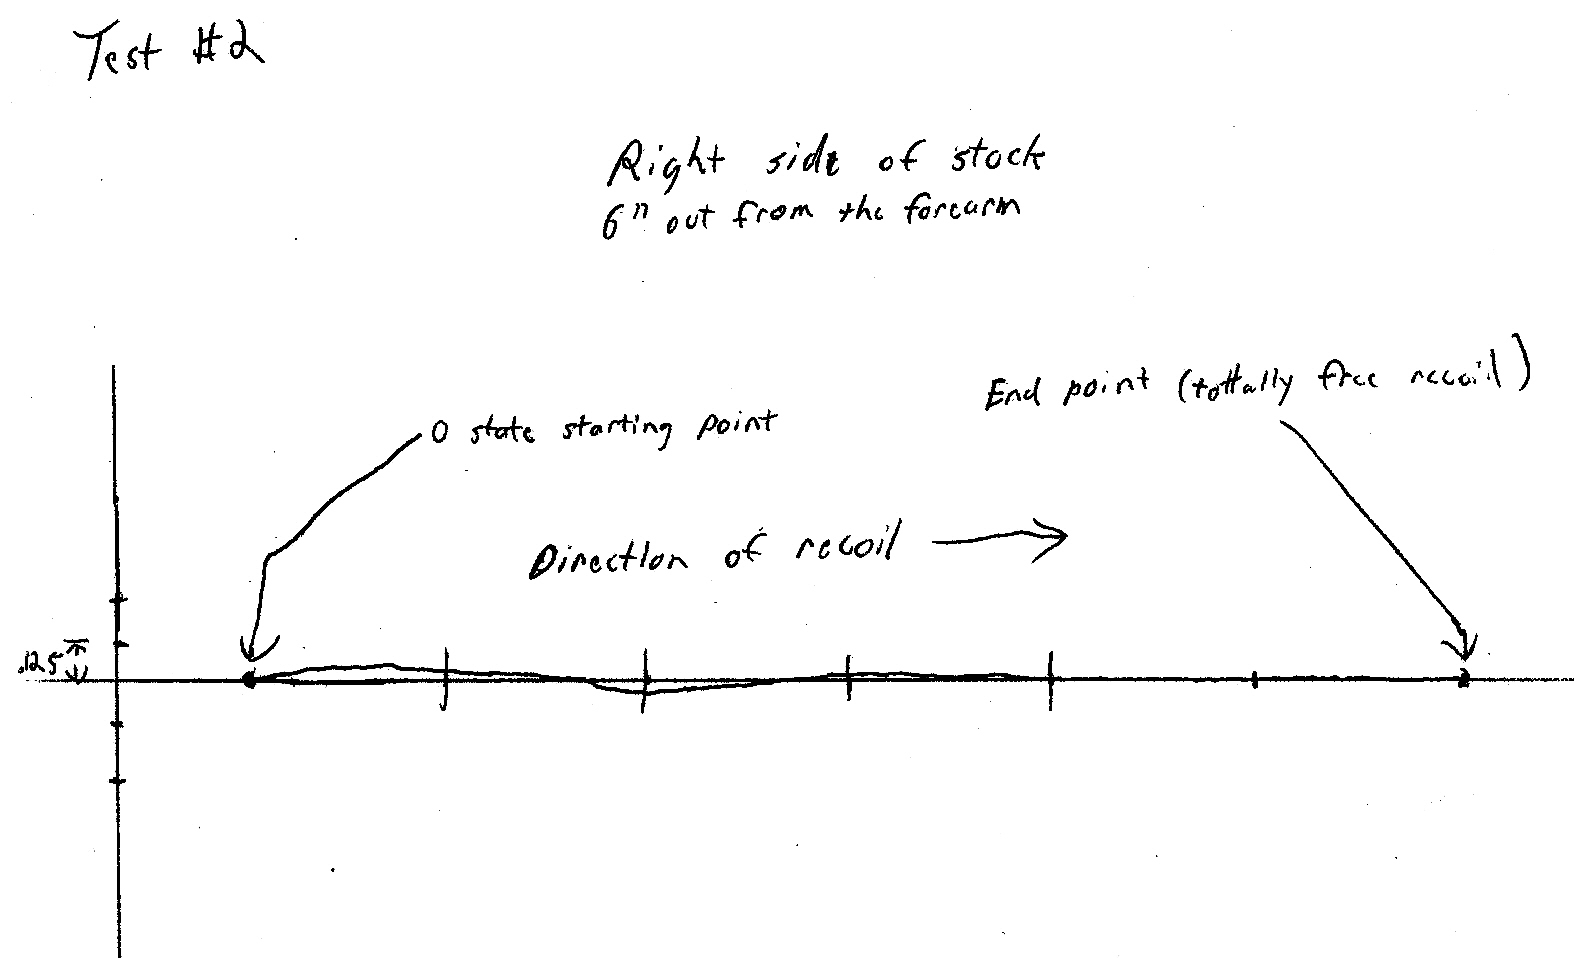 Test #2
Right side of stock
6" out from the forearm
End point (tottally free recoil)
0 state starting point
Direction of recoil
.125